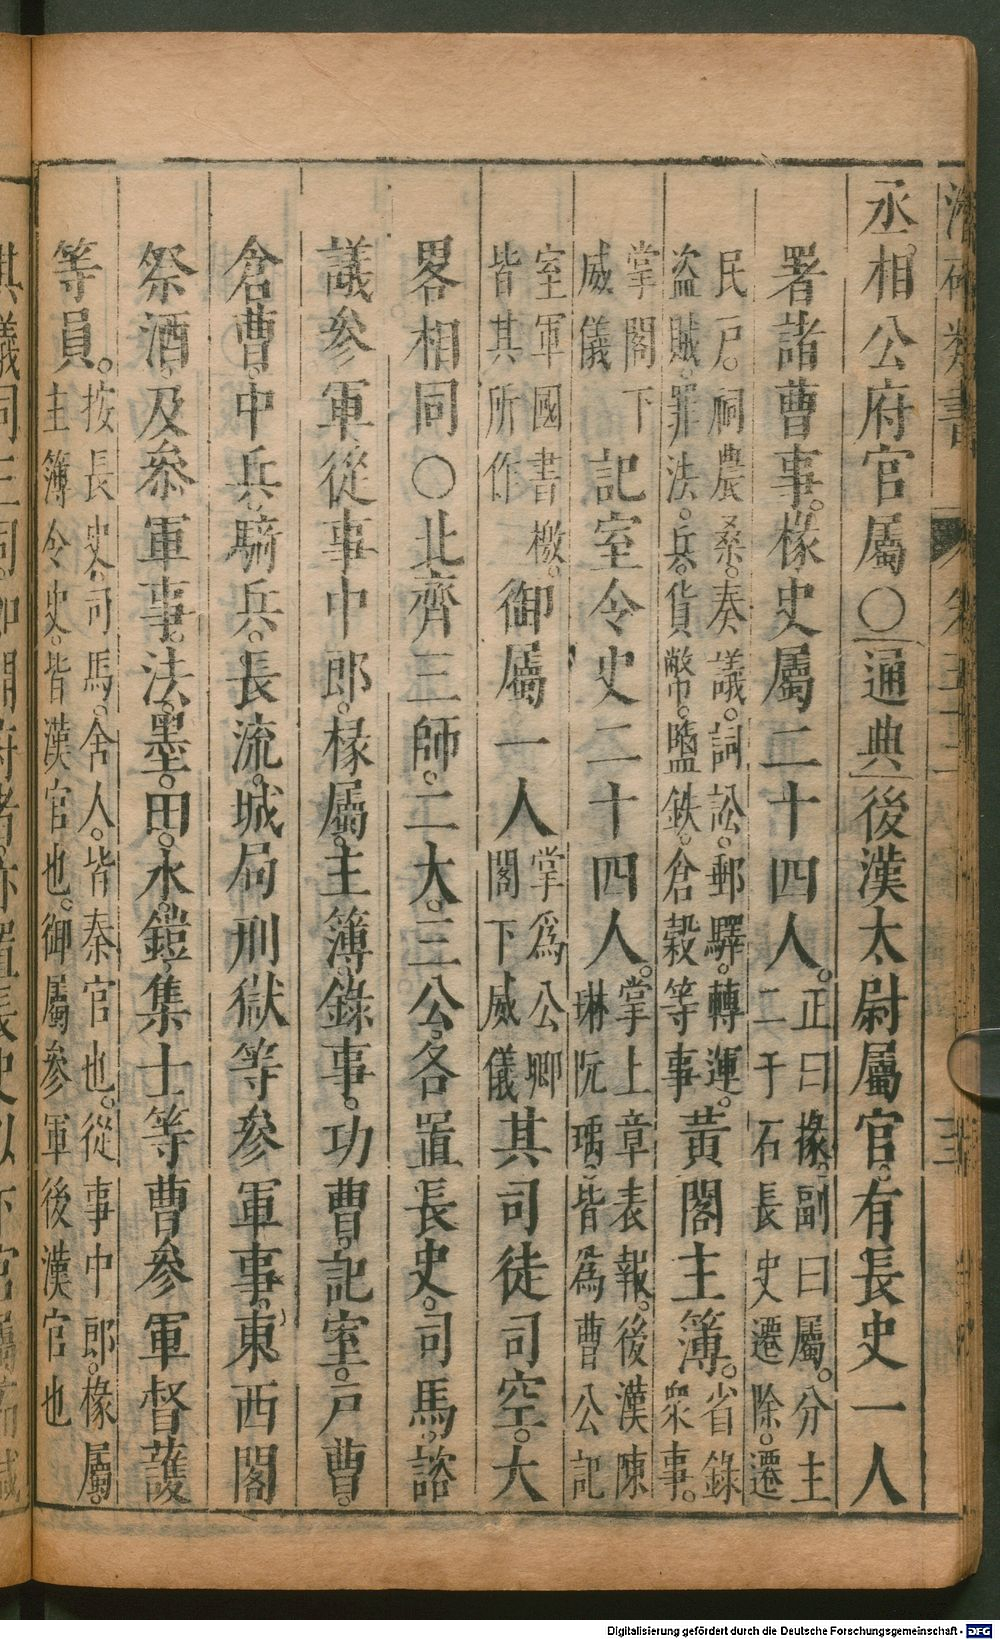 丞相公府官屬○通典後漢太尉屬官。有長史一人
署諸曹事。掾史屬二十四人。正曰掾。副曰屬。分主
二千石長史遷除。遷
民戶。祠農桑。奏議。詞訟。郵驛。轉運。
盜賊。罪法。兵。貨幣。鹽鉄。倉穀等事
黃閣主簿。省錄
衆事。
掌閣下
威儀
記室令史二十四人。掌上章表報。後漢陳
琳阮瑀。皆為曹公記
室軍國書檄。
皆其所作
御屬一人掌為公卿
閣下威儀
其司徒司空。大
畧相同○北齊三師。二大。三公。各置長史。司馬。諮
議參軍從事中郎。掾屬。主簿。錄事。功曹。記室。戶曹。
倉曹。中兵。騎兵。長流。城局刑獄等參軍事。東西閣
祭酒。及參軍事。法。墨。田。水。鎧。集士等曹參軍督護
等員。按長史。司馬。舍人。皆秦官也。從事中郎。掾屬。
主簿令史。皆漢官也。御屬參軍後漢官也
Digitalisierung gefördert durch die Deutsche Forschungsgemeinschaft - DFG